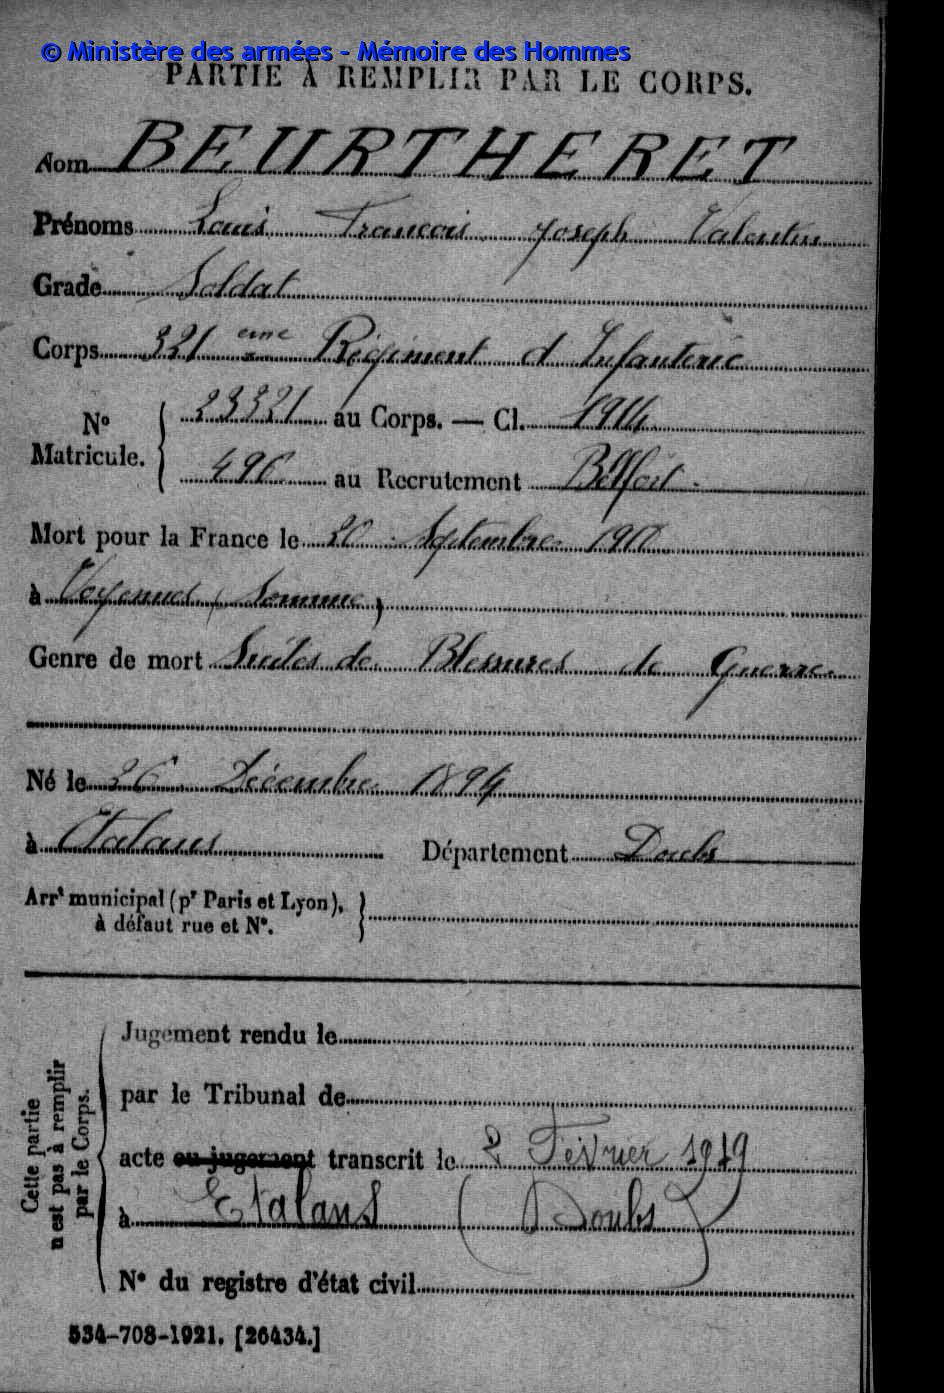 © Ministère des armées - Mémoire des Hommes
PARTIE À REMPLIR PAR LE CORPS.
Nom BEURTHERET
Prénoms Louis Francois Joseph Valentin
Grade Soldat
Corps 321 eme Régiment d Infanterie
No Matricule. { 23321 au Corps. — Cl. 1914
496 au Recrutement Belfort.
Mort pour la France le 20 Septembre
à Voyennes (Somme)
Genre de mort Suites de Blessures de Guerre
Né le 26 Décembre 1894
à Etalans Département Doubs
Arrt municipal (pr Paris et Lyon), }
à défaut rue et No.
Cette partie
n'est pas à remplir
par le Corps.
Jugement rendu le
par le Tribunal de
acte ou jugement transcrit le 2 Février 1919
à Etalans (Doubs)
No du registre d'état civil
534-708-1921. [26434.]